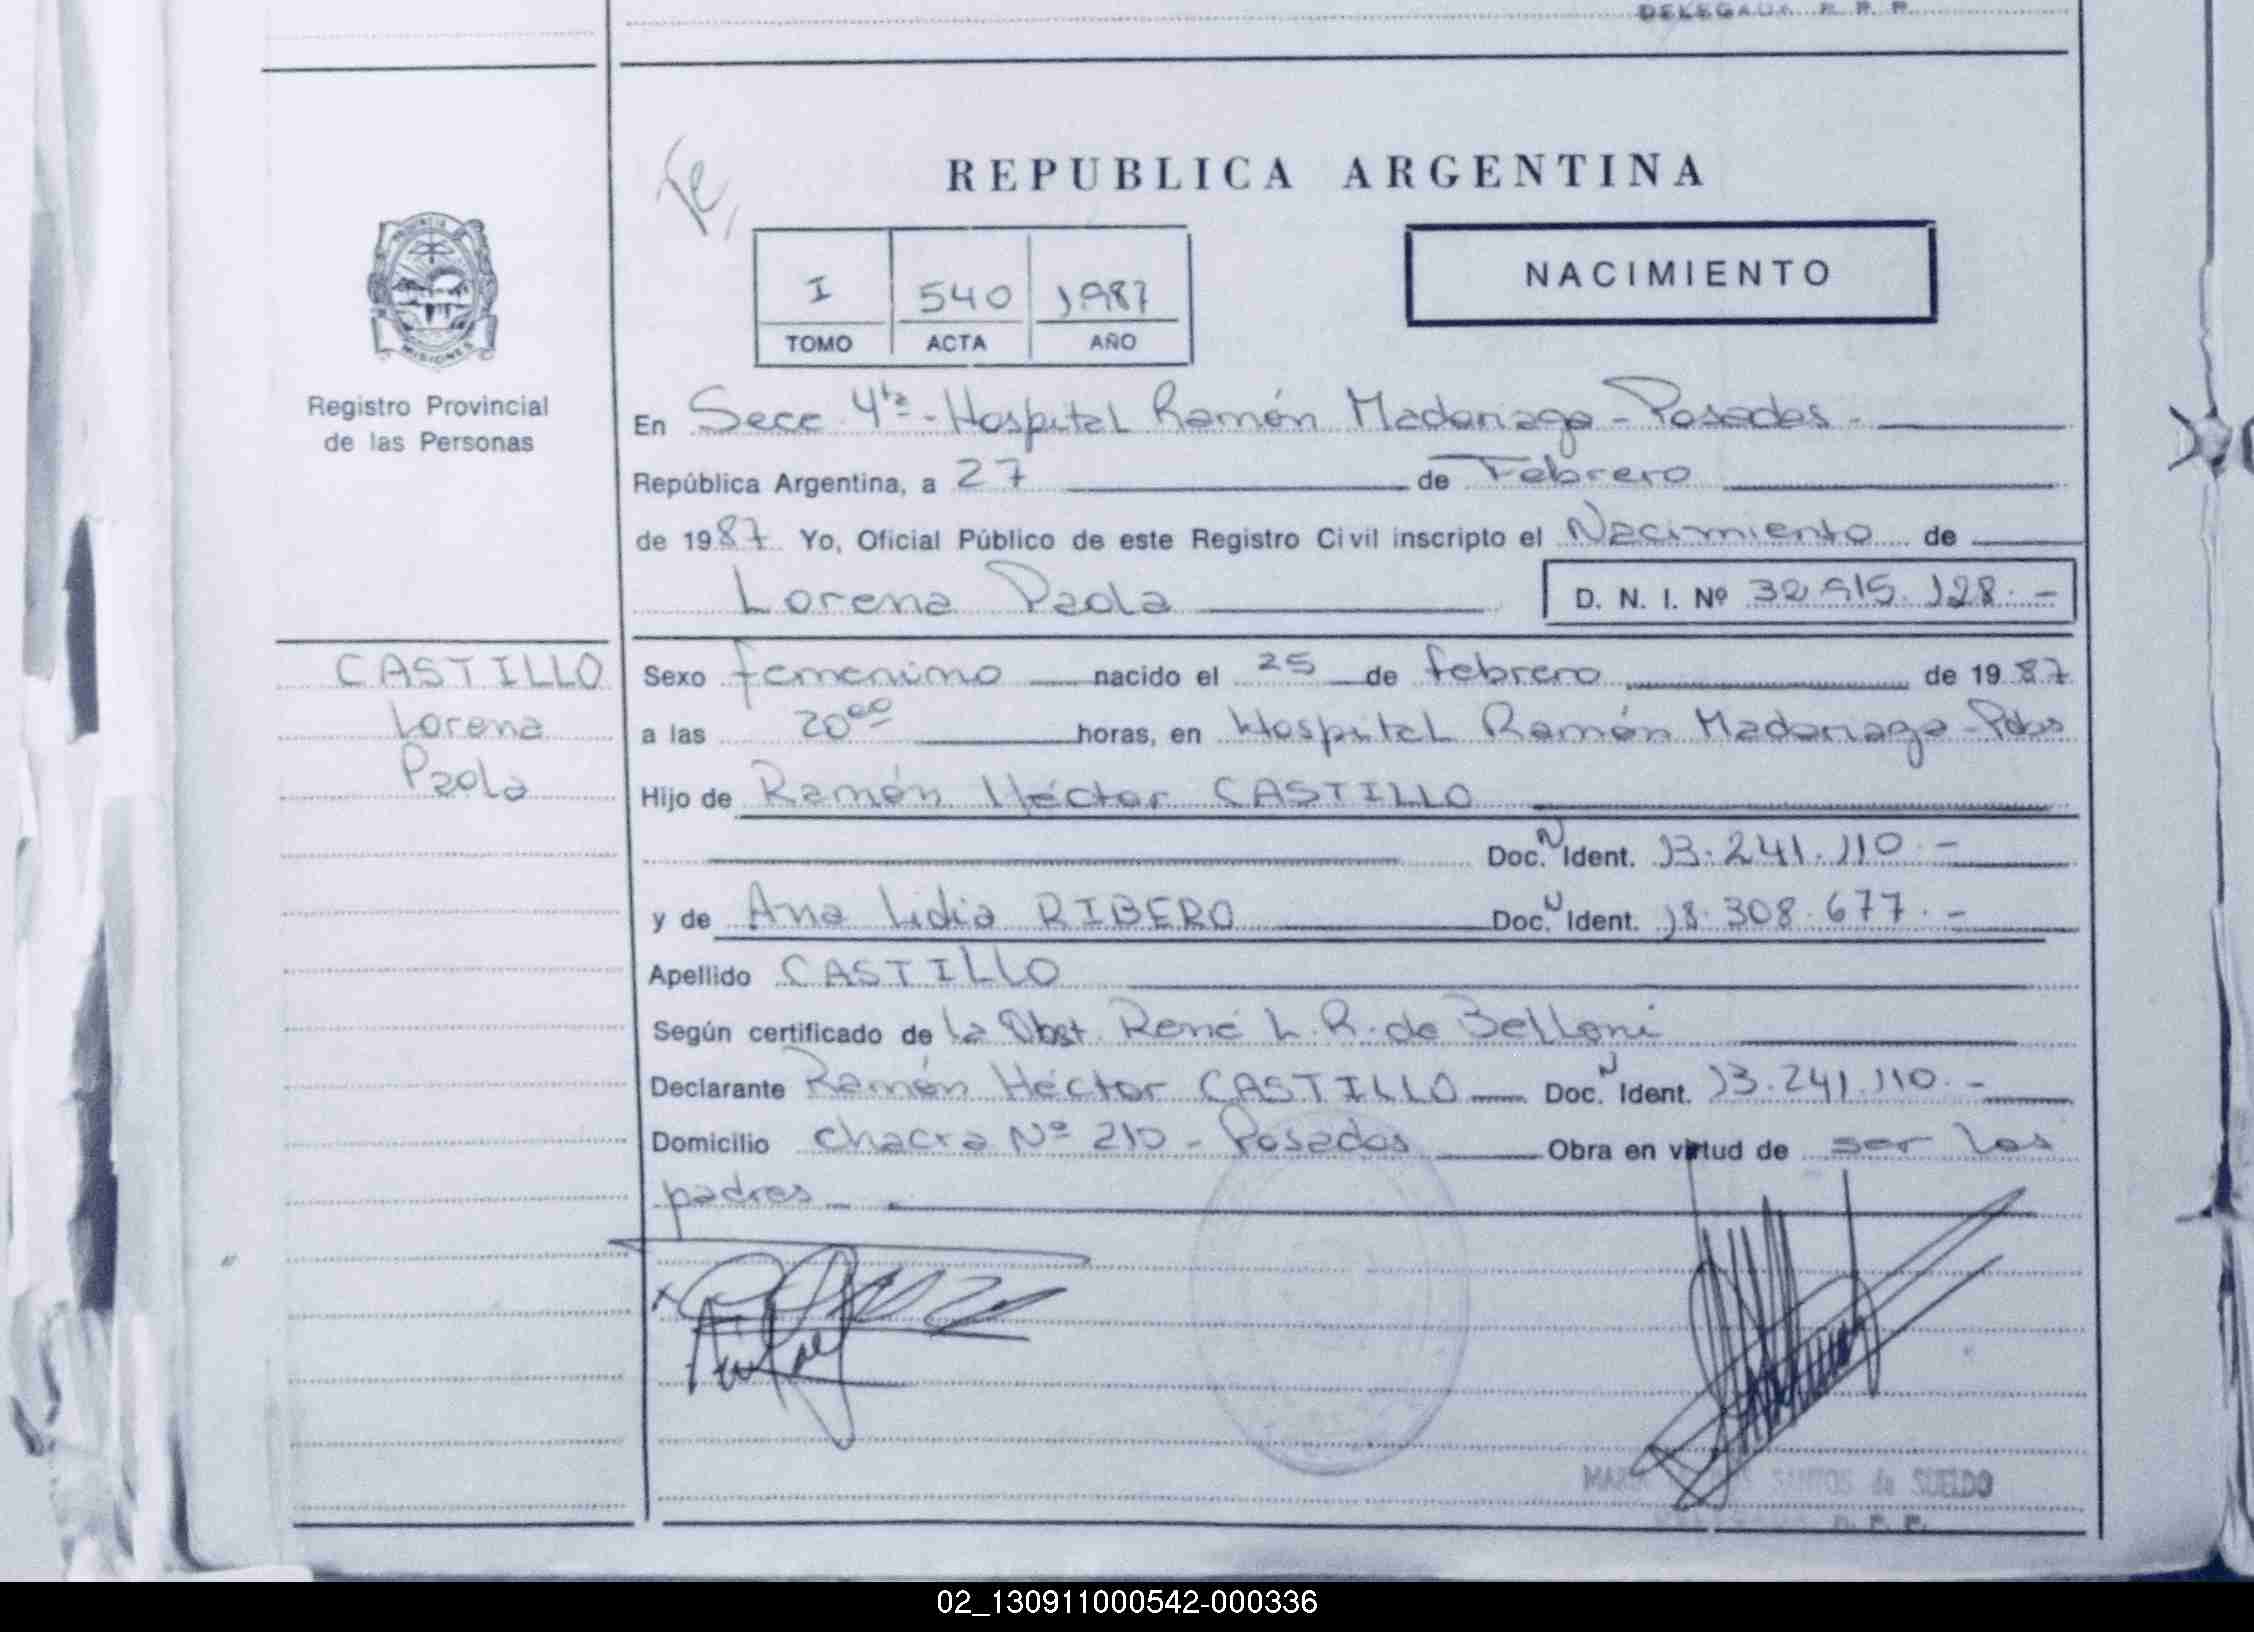 DELEGADA R. P. P.
REPUBLICA ARGENTINA
NACIMIENTO
I 540 1987
TOMO ACTA AÑO
PROVINCIA DE
MISIONES
Registro Provincial
de las Personas
En Secc 4ta - Hospital Ramón Madariaga - Posadas -
República Argentina, a 27 de Febrero
de 1987 Yo, Oficial Público de este Registro Civil inscripto el Nacimiento de
Lorena Paola D. N. I. Nº 32.915.128.-
CASTILLO
Lorena
Paola
Sexo femenino nacido el 25 de febrero de 1987
a las 20oo horas, en Hospital Ramón Madariaga - Pdas
Hijo de Ramón Héctor CASTILLO
Doc. N Ident. 13.241.110.-
y de Ana Lidia RIBERO Doc. N Ident. 18.308.677.-
Apellido CASTILLO
Según certificado de la Obst. René L. R. de Belloni
Declarante Ramón Héctor CASTILLO Doc. N Ident. 13.241.110.-
Domicilio chacra Nº 210 - Posadas Obra en virtud de ser los
padres
SANTOS de SUELDO
R. P. P.
02_130911000542-000336